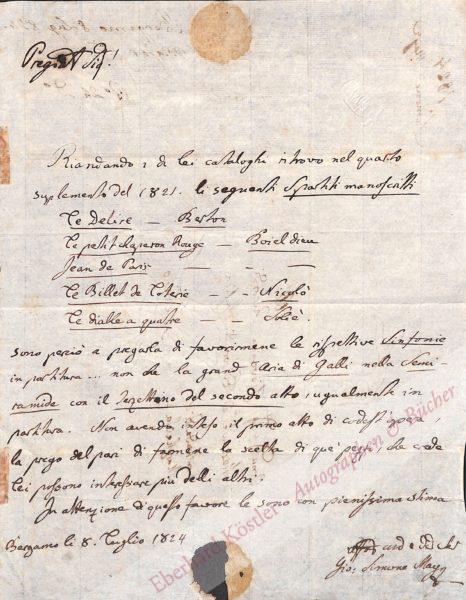 Riandando i di lei cataloghi ritrovo nel quarto
suplemento del 1821. li seguenti Spartiti manoscritti
Le Delire — Berton
Le petit chaperon Rouge — Boieldieu
Jean de Paris — — —
Le Billet de Loterie — - Nicolò
Le diable a quatre — Soliè.
sono perciò a pregarla di favorirmene le rispettive Sinfonie
in partitura... non che la grand Aria di Galli nella Semi-
ramide con il Terzettino del secondo atto, ugualmente in
partitura. Non avendo inteso il primo atto di codest'opera,
la prego del pari di farmene la scelta di que' pezzi, che crede
lei possono interessare più delli altri.
In attenzione di questo favore le sono con pienissima stima
Bergamo li 8. Luglio 1824
Gio: Simone Mayr
Eberhard Köstler Autographen & Bücher